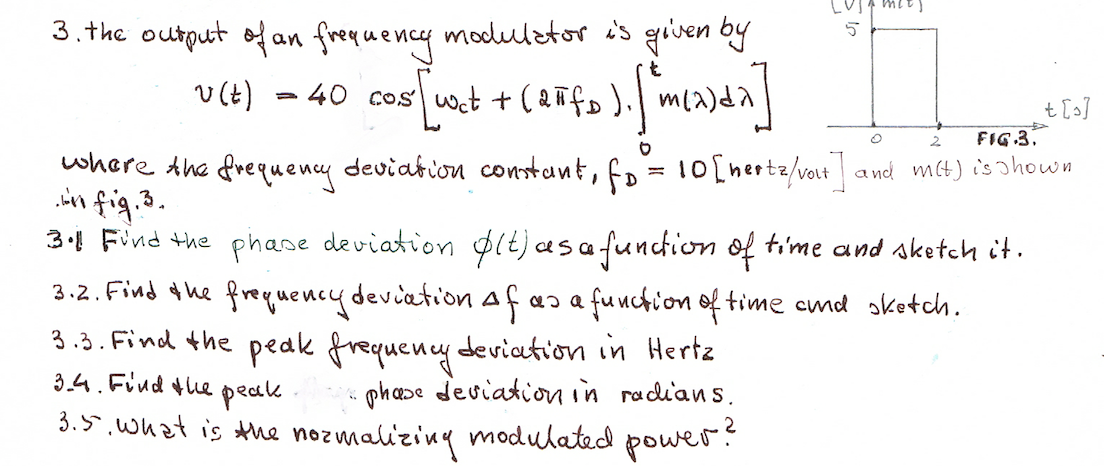 [V] m(t)
5
3. the output of an frequency modulator is given by
v(t) = 40 cos[ωct + (2πf_D).∫₀ᵗ m(λ)dλ]
t[s]
0 2 FIG.3.
where the frequency deviation constant, f_D = 10 [hertz/volt] and m(t) is shown
in fig.3.
3.1 Find the phase deviation φ(t) as a function of time and sketch it.
3.2. Find the frequency deviation Δf as a function of time and sketch.
3.3. Find the peak frequency deviation in Hertz
3.4. Find the peak phase deviation in radians.
3.5. What is the normalizing modulated power?